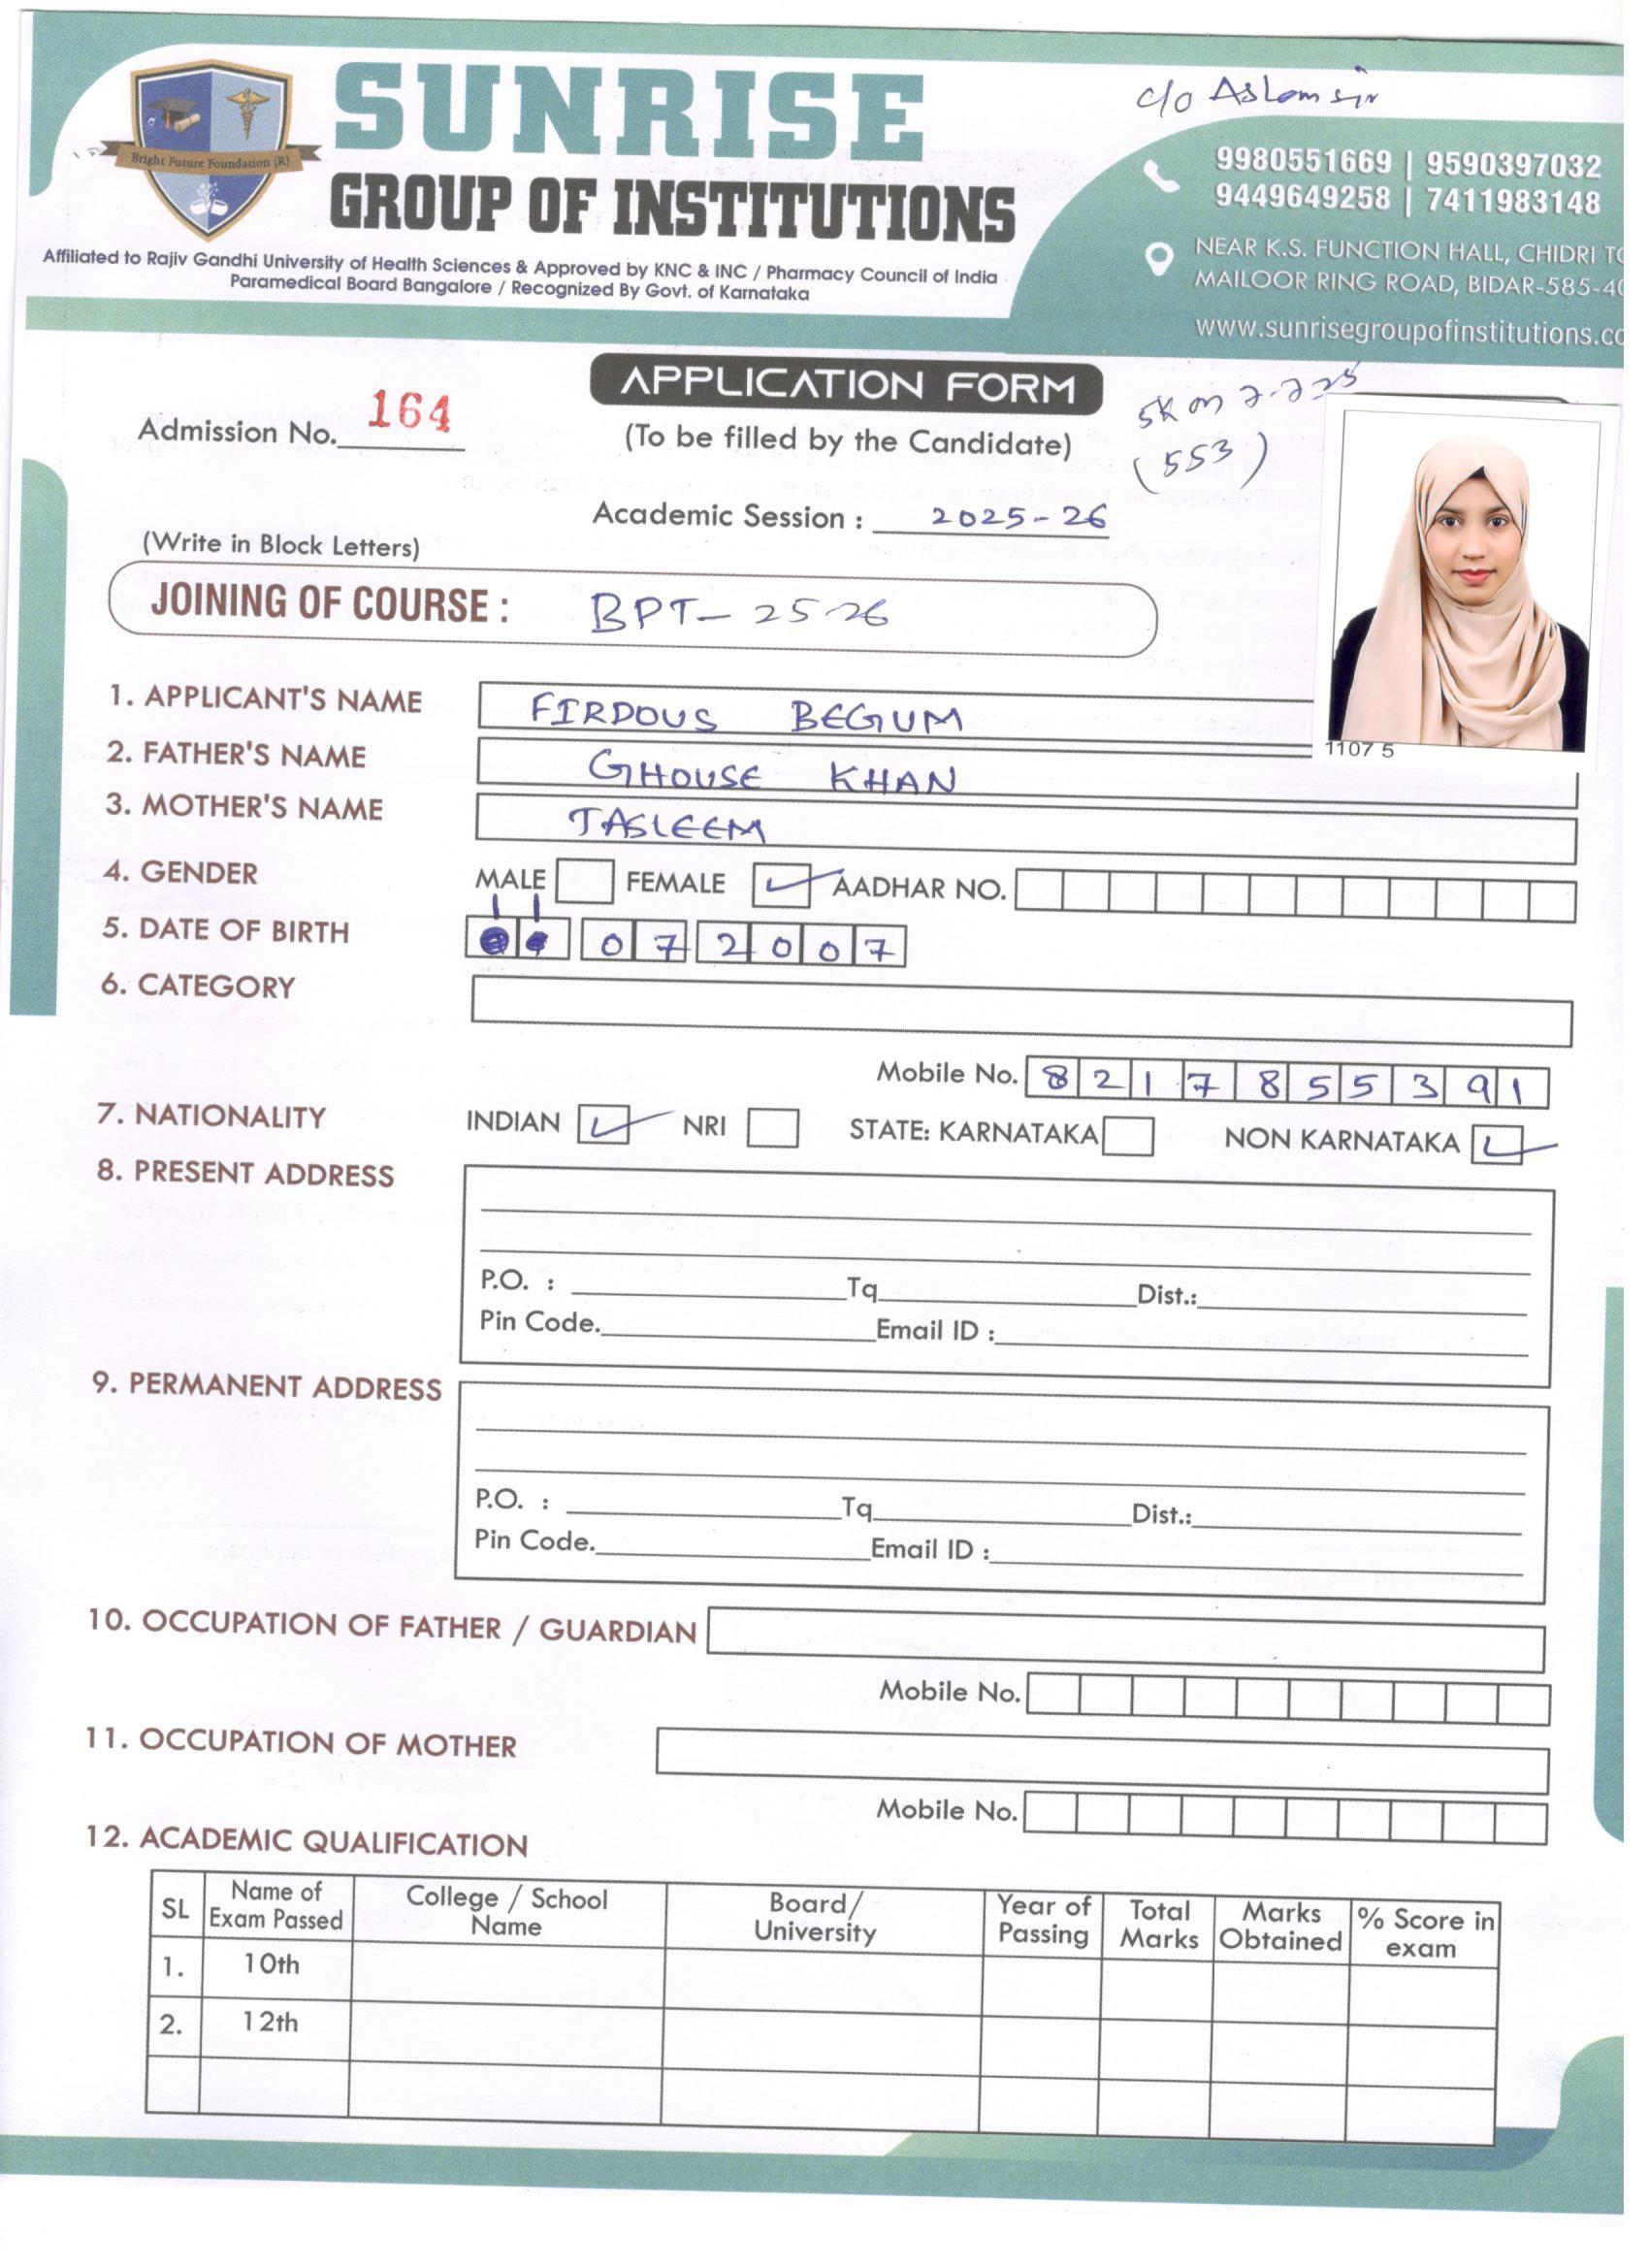 c/o Aslam sir
SUNRISE
GROUP OF INSTITUTIONS
Bright Future Foundation (R)
Affiliated to Rajiv Gandhi University of Health Sciences & Approved by KNC & INC / Pharmacy Council of India
Paramedical Board Bangalore / Recognized By Govt. of Karnataka
9980551669 | 9590397032
9449649258 | 7411983148
NEAR K.S. FUNCTION HALL, CHIDRI
MAILOOR RING ROAD, BIDAR-585-40
www.sunrisegroupofinstitutions.co
APPLICATION FORM
5K on 7-7-25
(553)
Admission No. 164
(To be filled by the Candidate)
Academic Session : 2025-26
(Write in Block Letters)
JOINING OF COURSE : BPT- 25-26
1. APPLICANT'S NAME FIRDOUS BEGUM
1107 5
2. FATHER'S NAME GHOUSE KHAN
3. MOTHER'S NAME TASLEEM
4. GENDER MALE FEMALE AADHAR NO.
5. DATE OF BIRTH 11 07 2007
6. CATEGORY
Mobile No. 8217855391
7. NATIONALITY INDIAN NRI STATE: KARNATAKA NON KARNATAKA
8. PRESENT ADDRESS
P.O. : Tq Dist.:
Pin Code. Email ID :
9. PERMANENT ADDRESS
P.O. : Tq Dist.:
Pin Code. Email ID :
10. OCCUPATION OF FATHER / GUARDIAN
Mobile No.
11. OCCUPATION OF MOTHER
Mobile No.
12. ACADEMIC QUALIFICATION
SL Name of Exam Passed College / School Name Board/ University Year of Passing Total Marks Marks Obtained % Score in exam
1. 10th
2. 12th